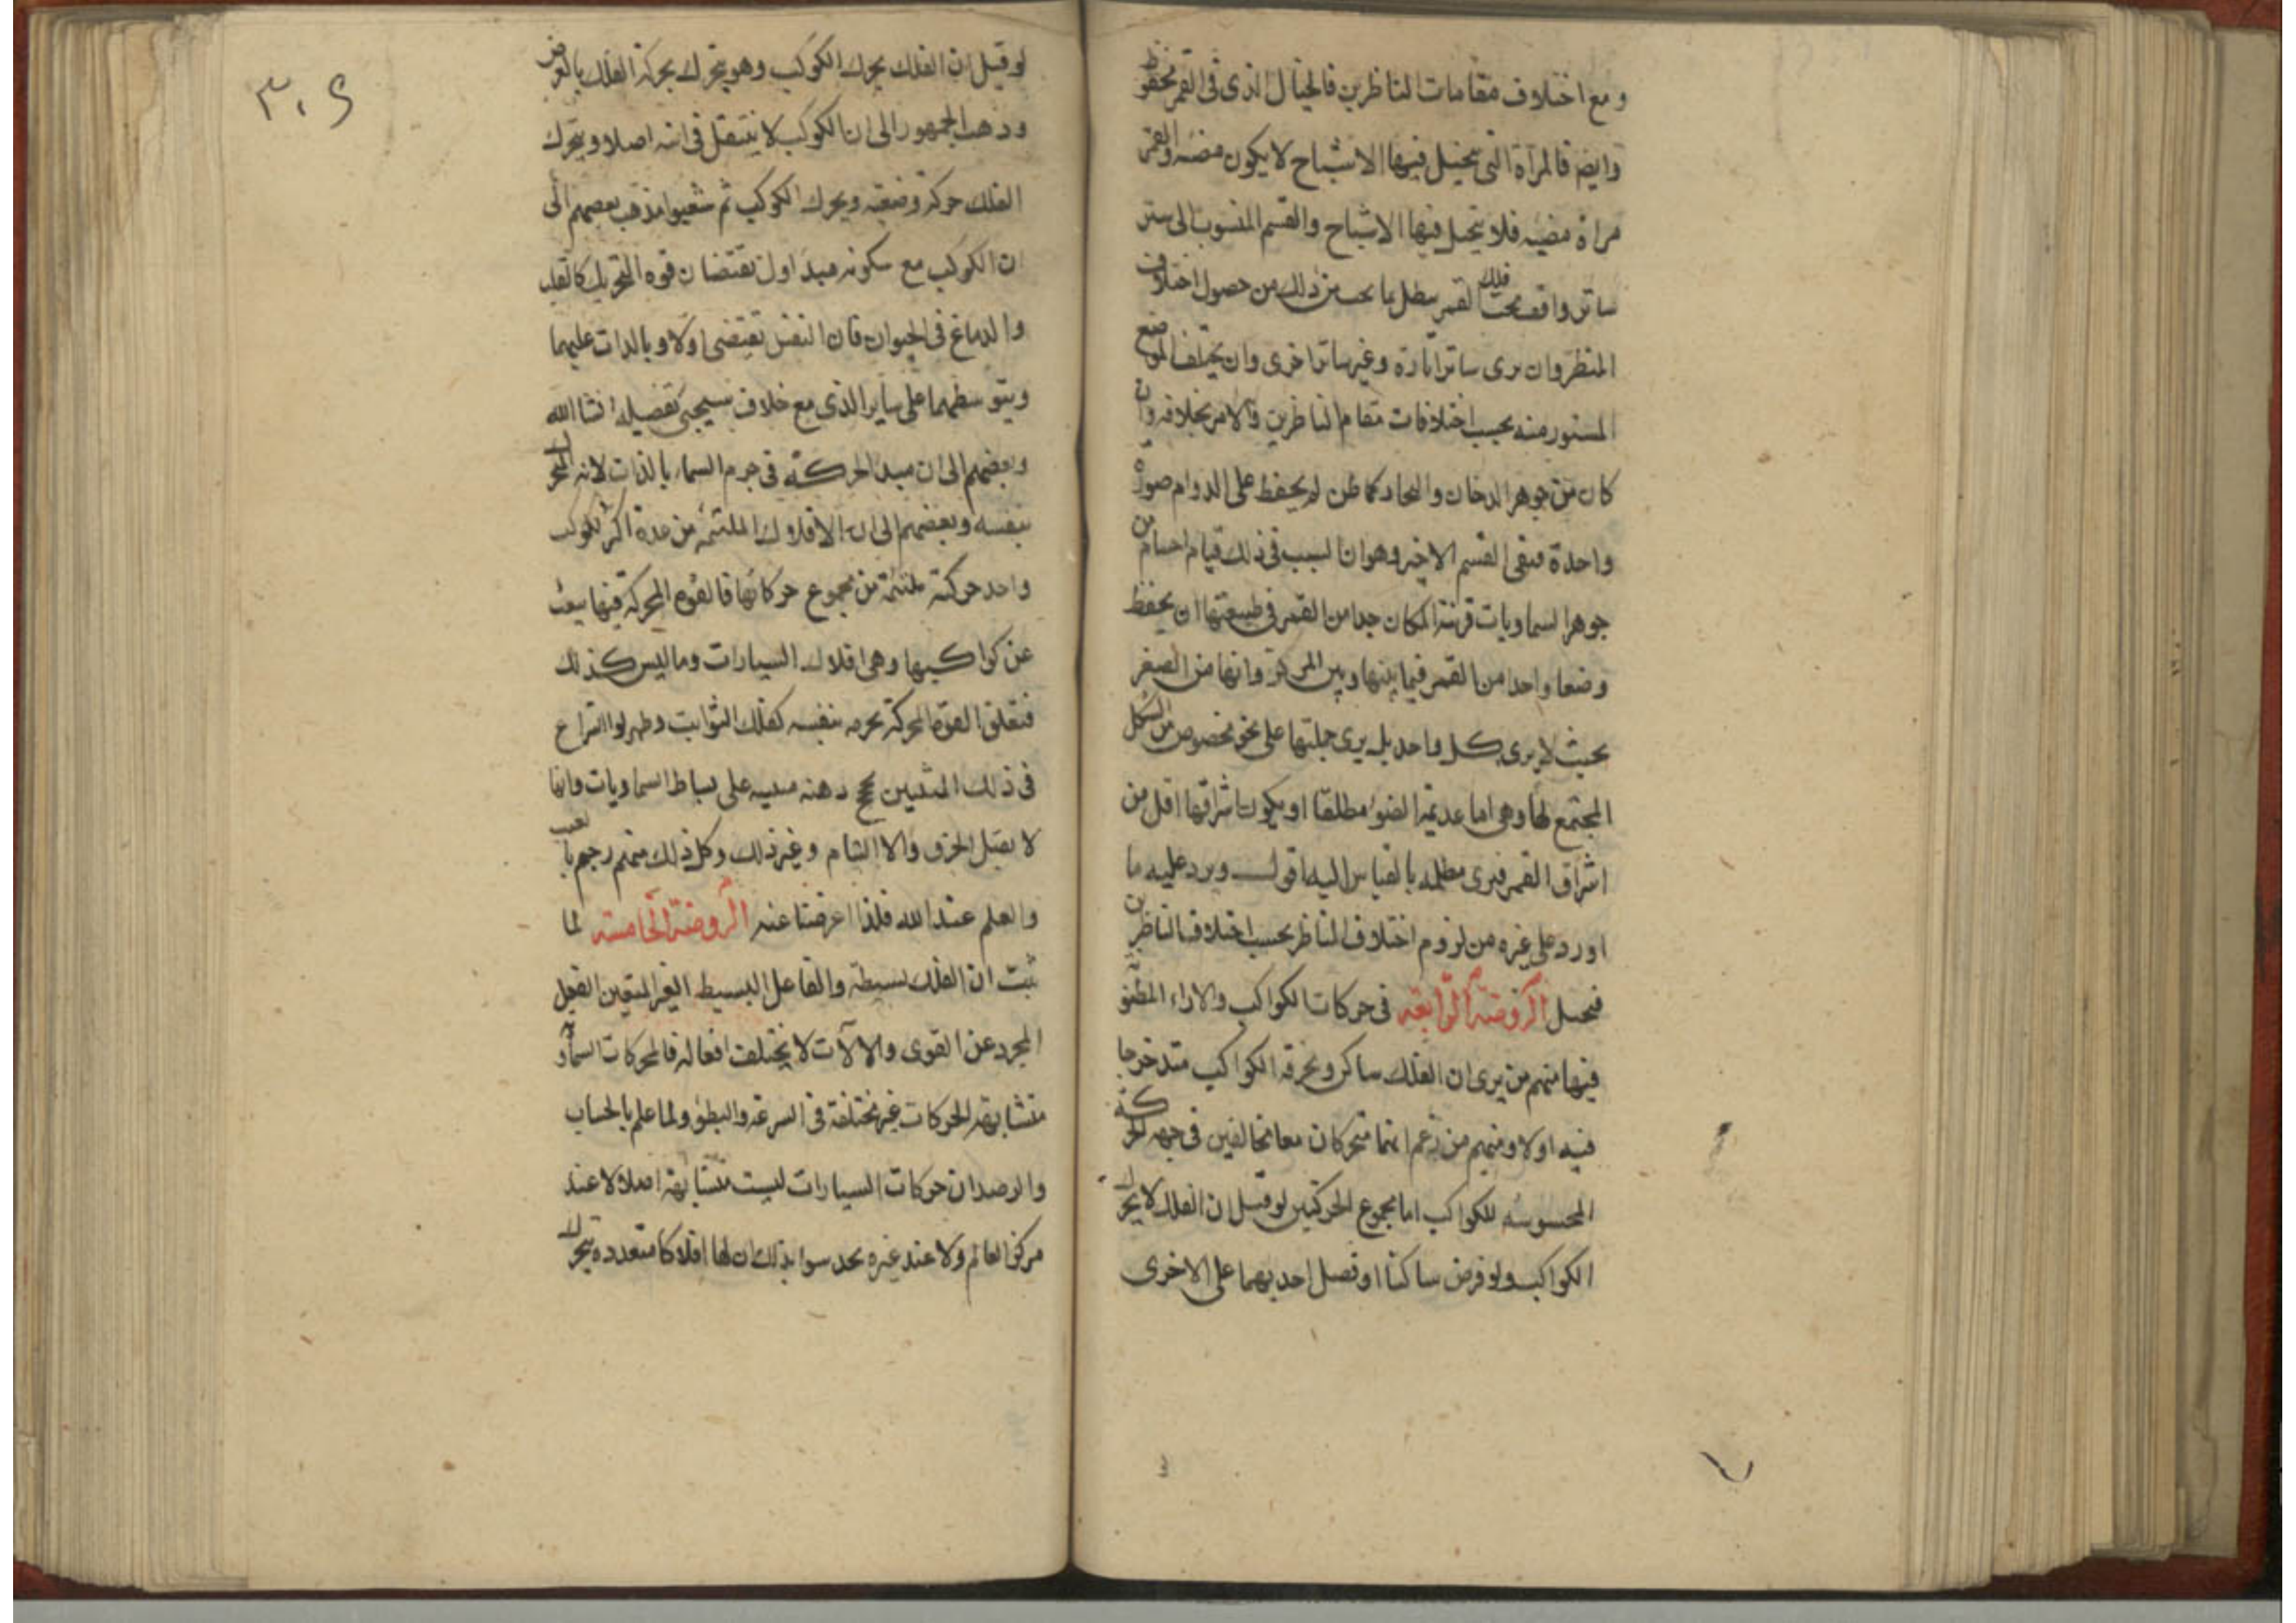 ومع اختلاف مقامات الناظرين فالخيال الذى فى القمر محفوظ
وايضا فالمرآة التى يتخيل فيها الاشباح لا يكون مضيئه والقمر
مراة مضيه فلا يتخيل فيها الاشباح والقسم المنسوب الى ستر
ساتر واقف تحت فلك القمر يبطل بما يحس من ذلك من حصول اختلاف
المنظر وان يرى ساترا تارة وغير ساترا اخرى وان يختلف الموضع
المستور منه بحسب اختلافات مقام الناظرين والامر بخلافه وان
كان من جوهر الدخان والبخار كما ظن لم يحفظ على الدوام صورة
واحدة فبقى القسم الاخير وهو ان السبب فى ذلك قيام اجسام من
جوهر السماويات قريبة المكان جدا من القمر فى طبيعتها ان يحفظ
وضعا واحدا من القمر فيما بينها وبين المركز وانها من الصغر
بحيث لا يرى كل واحد بل يرى جملتها على نحو مخصوص من الشكل
المجتمع لها وهى اما عديمة الضوء مطلقا او يكون اشراقها اقل من
اشراق القمر فيرى مظلمه بالقياس اليه اقول ويرد عليه ما
اورد على غيره من لزوم اختلاف المناظر بحسب اختلاف الناظرين
فتحمل الروضة الرابعه فى حركات الكواكب والاراء المظنونة
فيها منهم من يرى ان الفلك ساكن ويخرقه الكواكب متدحرجا
فيه اولا ومنهم من زعم انهما متحركان معا متخالفين فى جهه الحركة
المحسوسه للكواكب اما مجموع الحركتين لو قيل ان الفلك لا يحرك
الكواكب ولو فرض ساكنا او فضل احديهما على الاخرى
٣٠٩
لو قيل ان الفلك يحرك الكوكب وهو يتحرك بحركة الفلك بالعرض
وذهب الجمهور الى ان الكوكب لا ينتقل فى اينه اصلا ويتحرك
الفلك حركة وضعيه ويحرك الكوكب ثم شعبوا فذهب بعضهم الى
ان الكوكب مع سكونه مبدا اول يقتضان قوه التحريك كالقلب
والدماغ فى الحيوان فان النفس تقتضى اولا وبالذات عليهما
وبتوسطهما على ساير الذى مع خلاف سيجئ تفصيله انشا الله
وبعضهم الى ان مبدا الحركة فى جرم السماء بالذات لانه المتحرك
بنفسه وبعضهم الى ان الافلاك الملتئمه من عدة اكر لكوكب
واحد حركته ملتئمة من مجموع حركاتها فالقوه المحركة فيها يبعث
عن كواكبها وهى افلاك السيارات وما ليس كذلك
فتعلق القوة المحركة بجرمه بنفسه كفلك الثوابت
فى ذلك على بساط السماويات وانها
لا يقبل الخرق والا التيام وغير ذلك وكل ذلك منهم رجم بالغيب
والعلم عند الله فلذا اعرضنا عنه الروضة الخامسته لما
ثبت ان الفلك بسيطة والفاعل البسيط الغير المتقين الفعل
المجرد عن القوى والآلات لا يختلف افعاله فالمحركات السماو
متشابهة الحركات غير مختلفة فى السرعة والبطؤ ولما علم بالحساب
والرصد ان حركات السيارات ليست متشابهة اصلا لا عند
مركز العالم ولا عند غيره بحدسوا بذلك ان لها افلاكا متعدده يتحرك